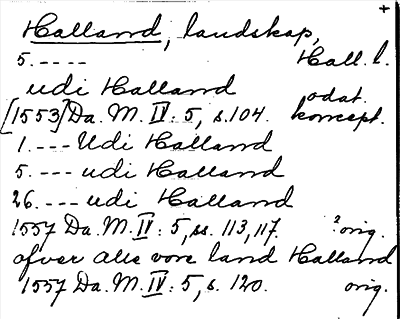 +
Halland, landskap,
5. - - - - Hall. l.
udi Halland
[1553] Da. M. IV: 5, s. 104. odat. koncept.
1. - - - Udi Halland
5. - - - udi Halland
26. - - - udi Halland
1557 Da. M. IV: 5, ss. 113, 117. ? orig.
ofver alle vore land Halland
1557 Da. M. IV: 5, s. 120. orig.